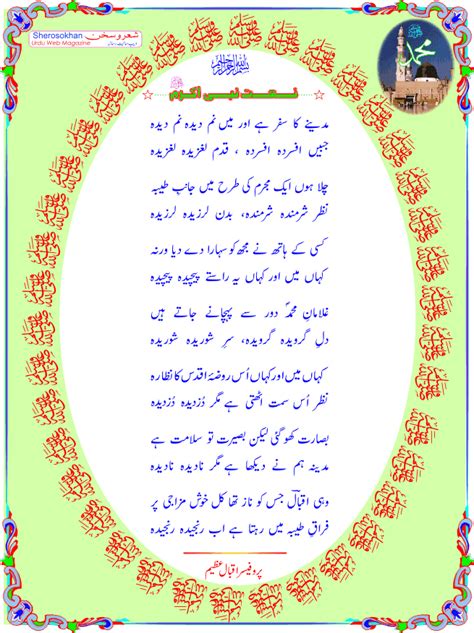 Sherosokhan
Urdu Web Magazine
شعر و سخن
محمد
بسم اللہ الرحمن الرحیم
نعت نبی اکرم ﷺ
مدینے کا سفر ہے اور میں نم دیدہ نم دیدہ
جبیں افسردہ افسردہ ، قدم لغزیدہ لغزیدہ
چلا ہوں ایک مجرم کی طرح میں جانبِ طیبہ
نظر شرمندہ شرمندہ، بدن لرزیدہ لرزیدہ
کسی کے ہاتھ نے مجھ کو سہارا دے دیا ورنہ
کہاں میں اور کہاں یہ راستے پیچیدہ پیچیدہ
غلامانِ محمدؐ دور سے پہچانے جاتے ہیں
دلِ گرویدہ گرویدہ، سرِ شوریدہ شوریدہ
کہاں میں اور کہاں اُس روضۂ اقدس کا نظارہ
نظر اُس سمت اٹھتی ہے مگر دُزدیدہ دُزدیدہ
بصارت کھو گئی لیکن بصیرت تو سلامت ہے
مدینہ ہم نے دیکھا ہے مگر نادیدہ نادیدہ
وہی اقبالؔ جس کو ناز تھا کل خوش مزاجی پر
فراقِ طیبہ میں رہتا ہے اب رنجیدہ رنجیدہ
پروفیسر اقبال عظیم